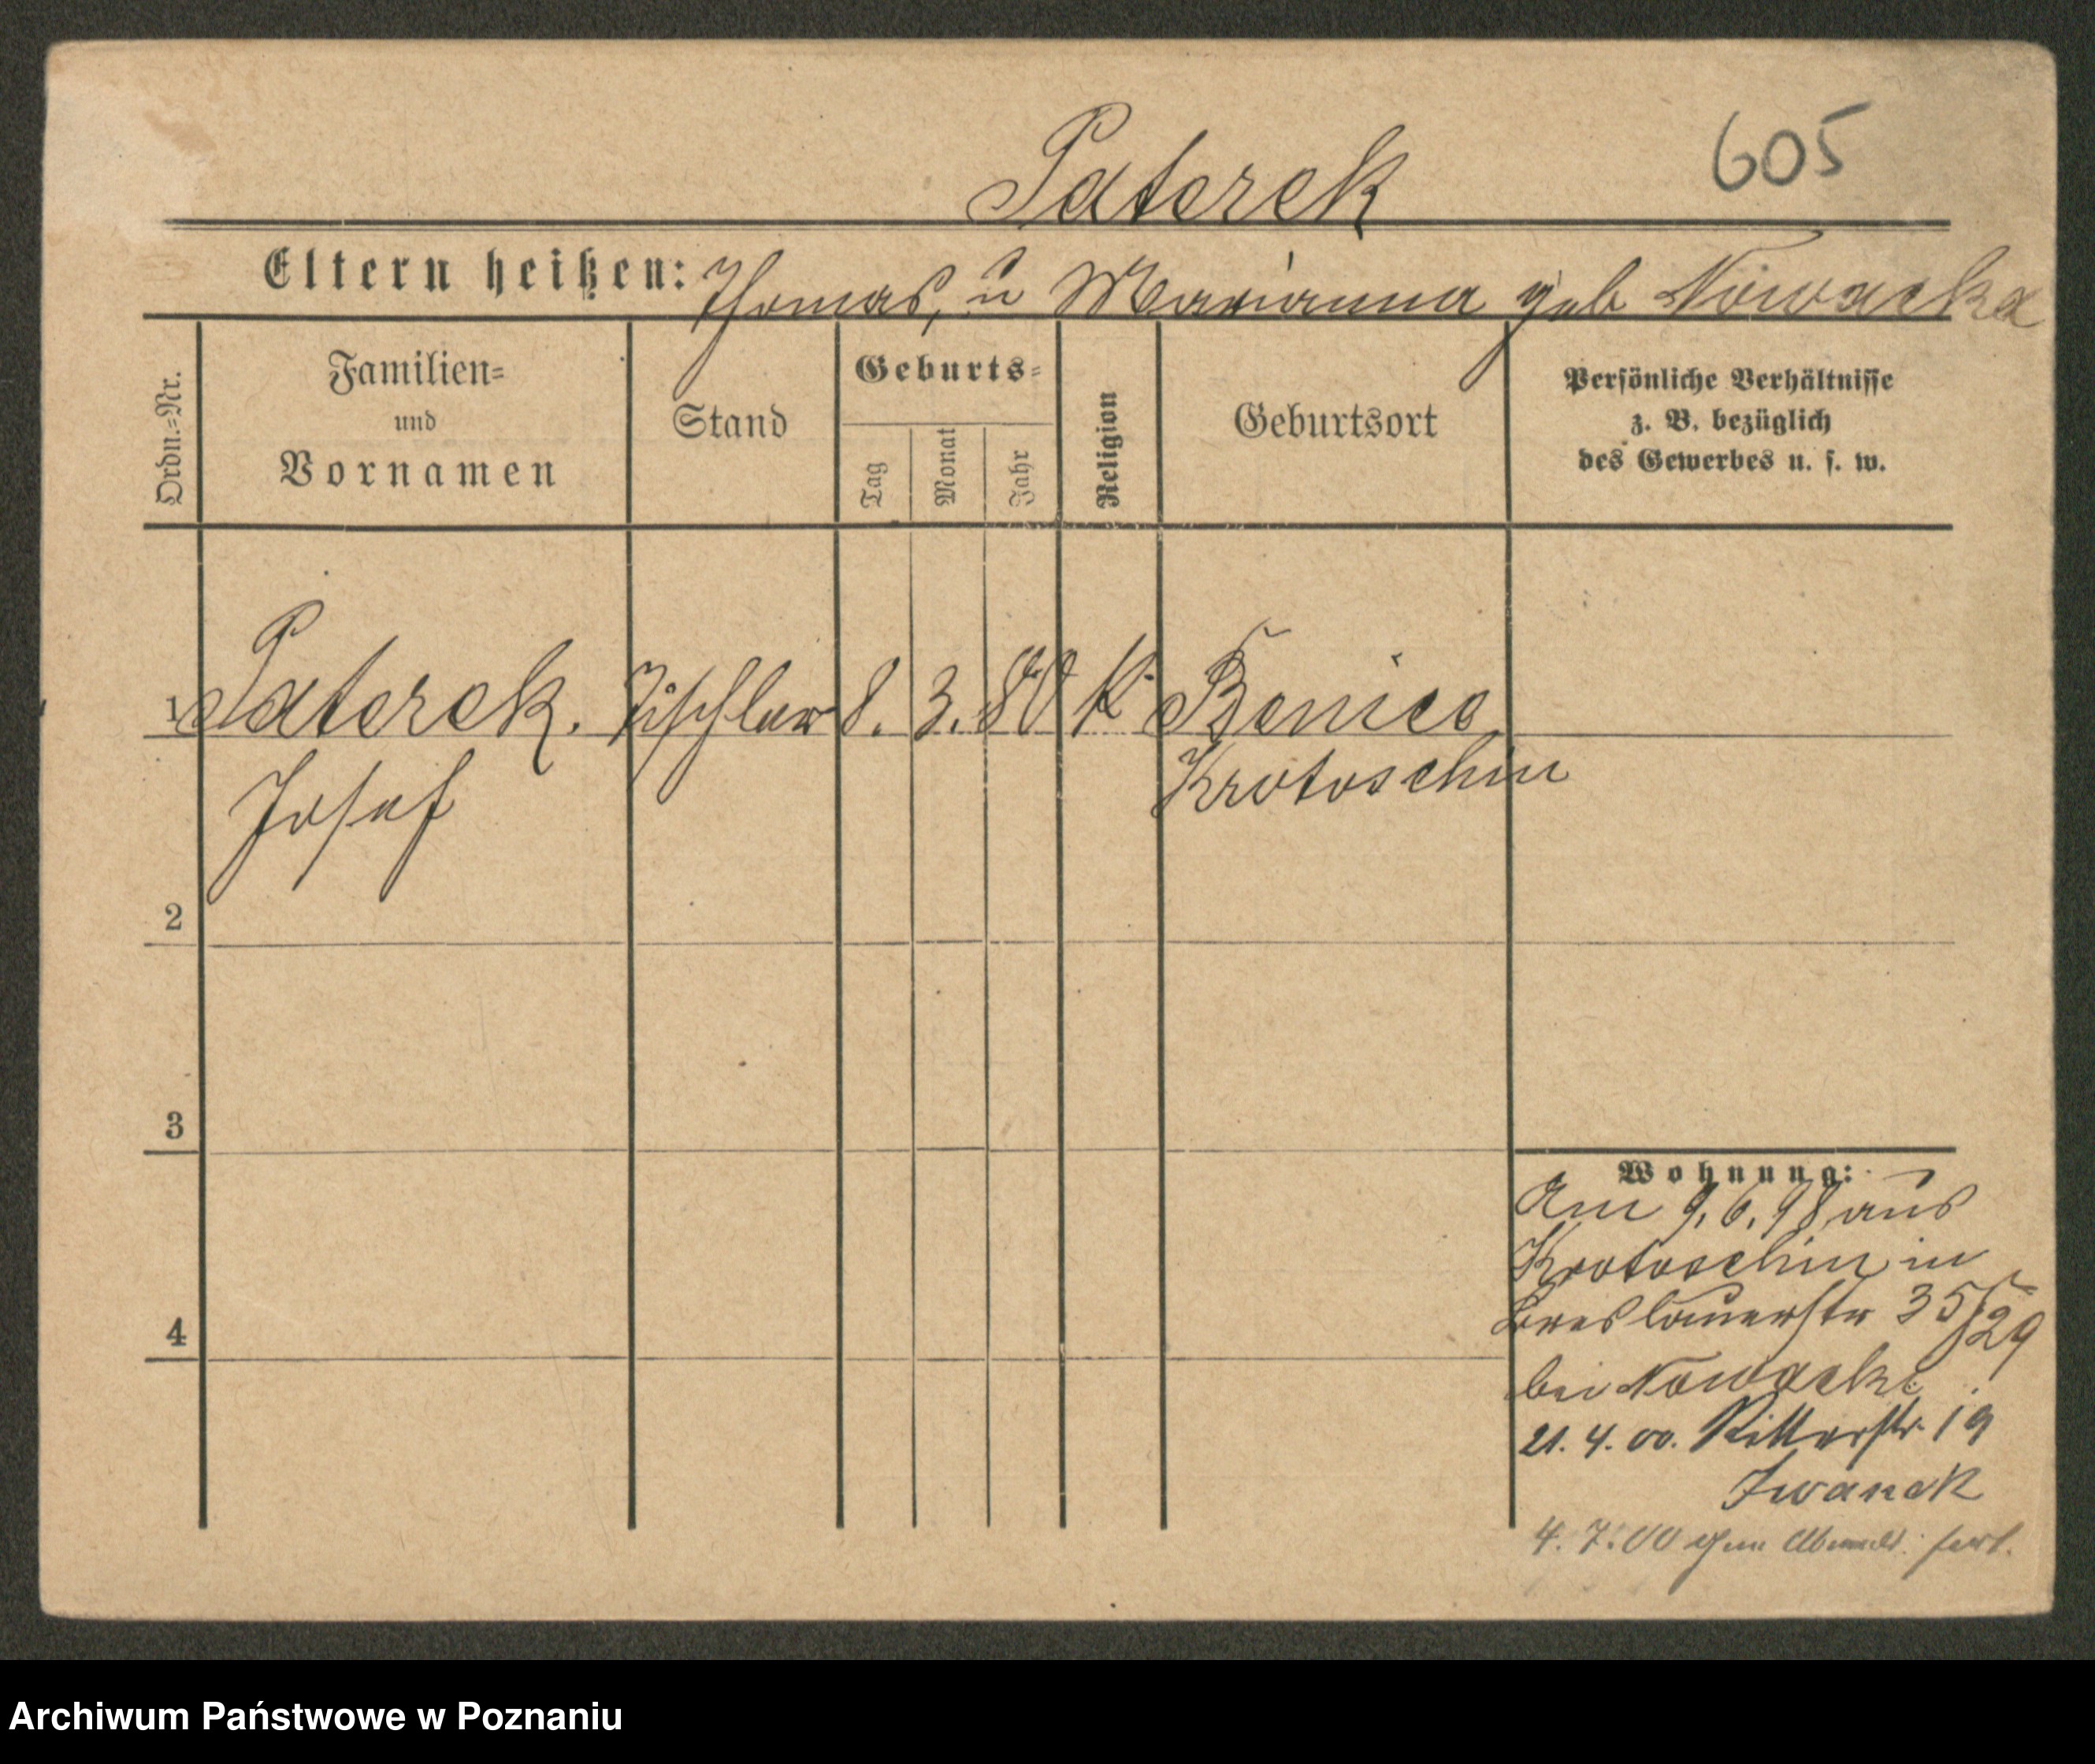 605
Paterek
Eltern heißen: Thomas, u Marianna geb Nowacka
Ordn.-Nr.
Familien-
und
Vornamen
Stand
Geburts-
Tag
Monat
Jahr
Religion
Geburtsort
Persönliche Verhältnisse
z. B. bezüglich
des Gewerbes u. s. w.
1 Paterek. Tischler 8. 3. 80 K. Benice
Josef Krotoschin
2
3
4
Wohnung:
Am 9.6.98 aus
Krotoschin in
Breslauerstr 35/29
bei Nowacki
21. 4. 00. Ritterstr. 19
Iwanek
4. 7. 00 Abmeld.
Archiwum Państwowe w Poznaniu